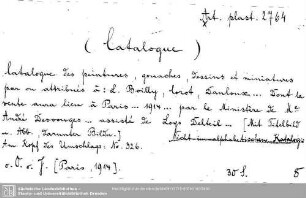 Art. plast. 2764
( Catalogue )
Catalogue des peintures, gouaches, dessins et miniatures
par ou attribués à : L. Boilly, Corot, Danloux... Dont la
vente aura lieu à Paris ... 1914... par le Ministère de Me
André Desvouges ... assisté de Loys Delteil ... [Mit Titelbild
u. Abb., darunter Bilder.]
Nicht im alphabetischen Kataloge
Am Kopf des Umschlags: No. 326.
o. O. o. J. [Paris, 1914]. 30 S. 8
Sächsische Landesbibliothek -
Staats- und Universitätsbibliothek Dresden